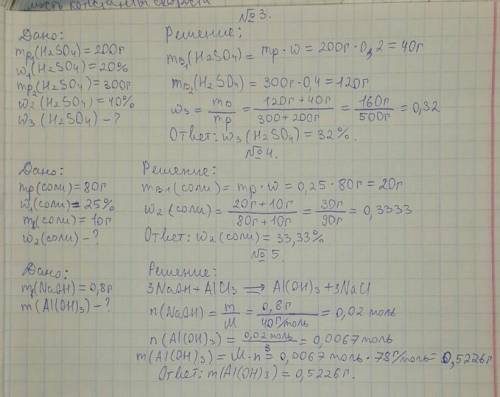 №3.
Дано:
mp1(H2SO4)=200г
w1(H2SO4)=20%
mp2(H2SO4)=300г
w2(H2SO4)=40%
w3(H2SO4)-?
Решение:
mв1(H2SO4)=mp·w=200г·0,2=40г
mв2(H2SO4)=300г·0,4=120г
w3=mв/mp=(120г+40г)/(300+200г)=160г/500г=0,32
Ответ: w3(H2SO4)=32%.
№4.
Дано:
mp(соли)=80г
w1(соли)=25%
m(соли)=10г
w2(соли)-?
Решение:
mв1(соли)=mp·w=0,25·80г=20г
w2(соли)=(20г+10г)/(80г+10г)=30г/90г=0,3333
Ответ: w2(соли)=33,33%
№5.
Дано:
m(NaOH)=0,8г
m(Al(OH)3)-?
Решение:
3NaOH+AlCl3=Al(OH)3+3NaCl
n(NaOH)=m/M=0,8г/40г/моль=0,02 моль
n(Al(OH)3)=0,02 моль/3=0,0067 моль
m(Al(OH)3)=M·n=0,0067 моль·78г/моль=0,5226г.
Ответ: m(Al(OH)3)=0,5226г.